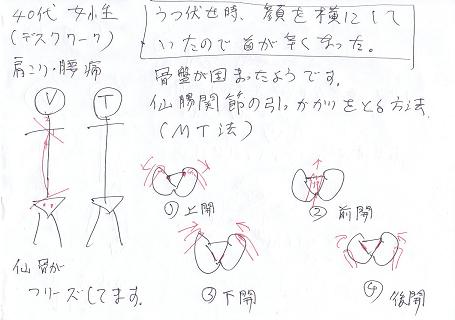 40代 女性
(デスクワーク)
肩こり・腰痛
うつ伏せ時、顔を横にして
いたので首が辛くなった。
骨盤が固まったようです。
仙腸関節の引っかかりをとる方法
(MT法)
V
T
① 上開
② 前開
③ 下開
④ 後開
仙骨が
フリーズしてます。